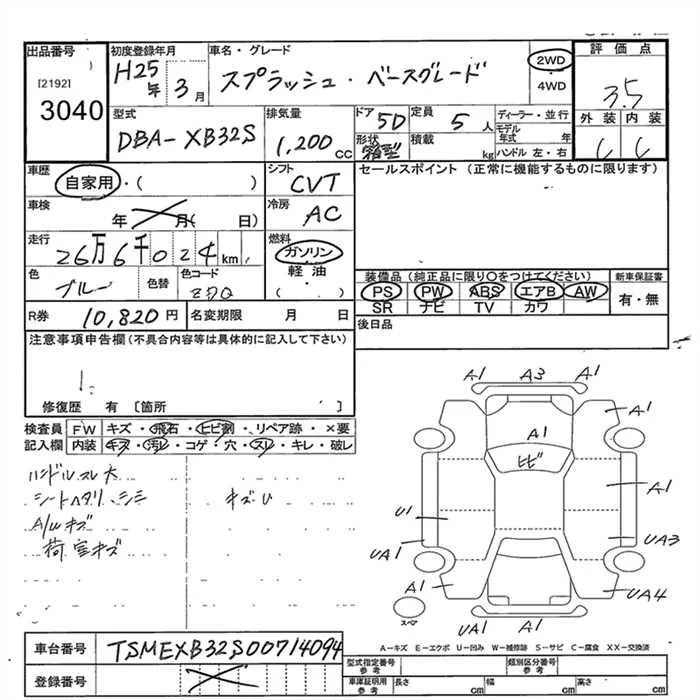 出品番号
[2192]
3040
初度登録年月
H25年 3月
車名・グレード
スプラッシュ・ベースグレード
2WD
・
4WD
評価点
3.5
外装 内装
C C
型式
DBA-XB32S
排気量
1,200cc
ドア 5D
形状 箱型
定員 5人
積載 kg
ディーラー・並行
モデル年式 年
ハンドル 左・右
車歴
自家用・( )
シフト
CVT
セールスポイント (正常に機能するものに限ります)
車検
年 月( 日)
冷房
AC
走行
26万6千024km
燃料
ガソリン
軽・油
( )
色
ブルー
色替
色コード
Z7Q
装備品 (純正品に限り○をつけてください)
PS PW ABS エアB AW
SR ナビ TV カワ
新車保証書
有・無
R券 10,820円
名変期限 月 日
後日品
注意事項申告欄 (不具合内容等は具体的に記入して下さい)
修復歴 有 [箇所 ]
検査員 FW キズ・飛石・ヒビ割・リペア跡・×要
記入欄 内装 キズ・汚レ・コゲ・穴・スレ・キレ・破レ
ハンドルスレ大
シートヘタリ、シミ
キズU
A/Wキズ
荷室キズ
A1 A3 A1
A1
A1
ヒビ
A1
U1
UA1
UA3
A1
UA4
スペア
UA1 A1
A-キズ E-エクボ U-凹み W-補修跡 S-サビ C-腐食 XX-交換済
車台番号 TSMEXB32S00714094
登録番号
型式指定番号 参考
類別区分番号 参考
車庫証明用 参考
長さ cm
幅 cm
高さ cm